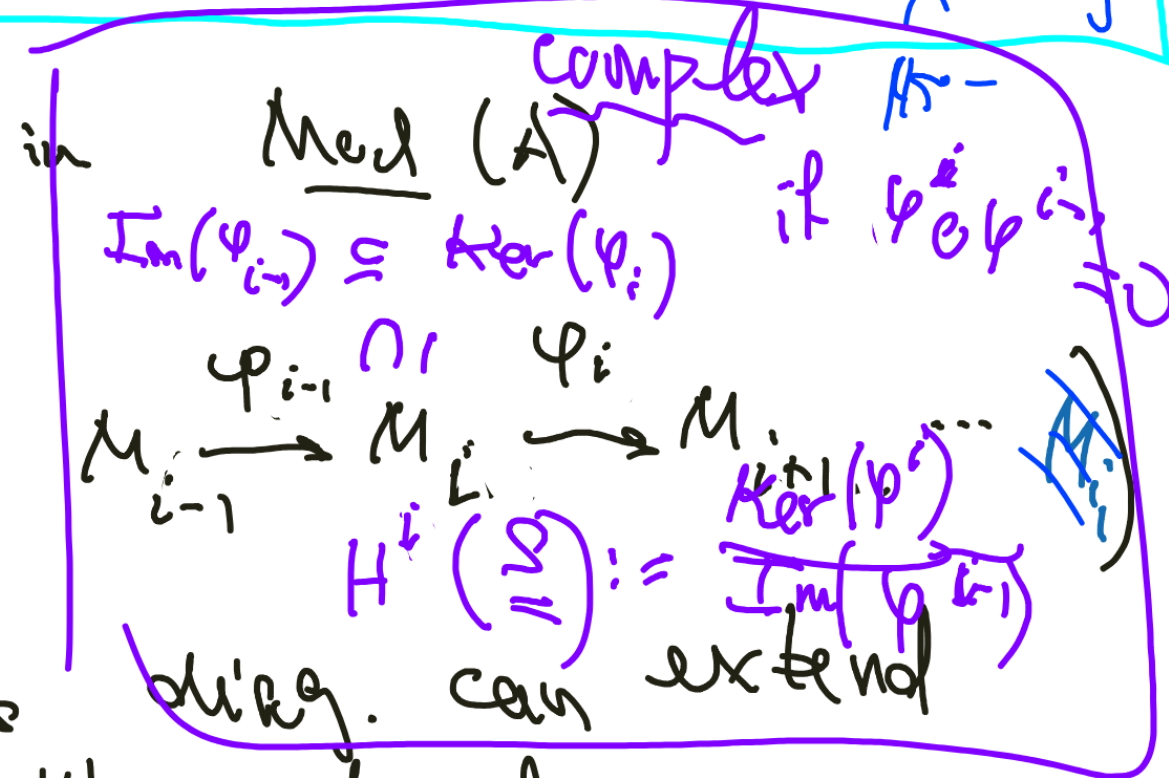 complex
in Mod (A)
if φ^i ∘ φ^{i-1} = 0
Im(φ_{i-1}) ⊆ Ker(φ_i)
∩
φ_{i-1} φ_i
M_{i-1} → M_i → M_{i+1} ...
H^i ( ) := Ker(φ^i) / Im(φ^{i-1})
diag. can extend